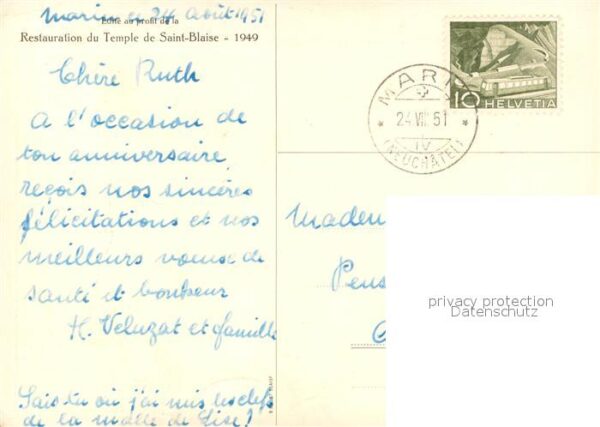 Marin le 24 août 1951
Edité au profit de la
Restauration du Temple de Saint-Blaise - 1949
Chère Ruth
A l'occasion de
ton anniversaire
reçois nos sincères
félicitations et nos
meilleurs voeux de
santé et bonheur
H. Veluzat et famille
Sais-tu où j'ai mis les clefs
de la malle de Lise?
10 HELVETIA
MARIN
24 VIII 51
IV
(NEUCHÂTEL)
Madem
Pens
privacy protection
Datenschutz